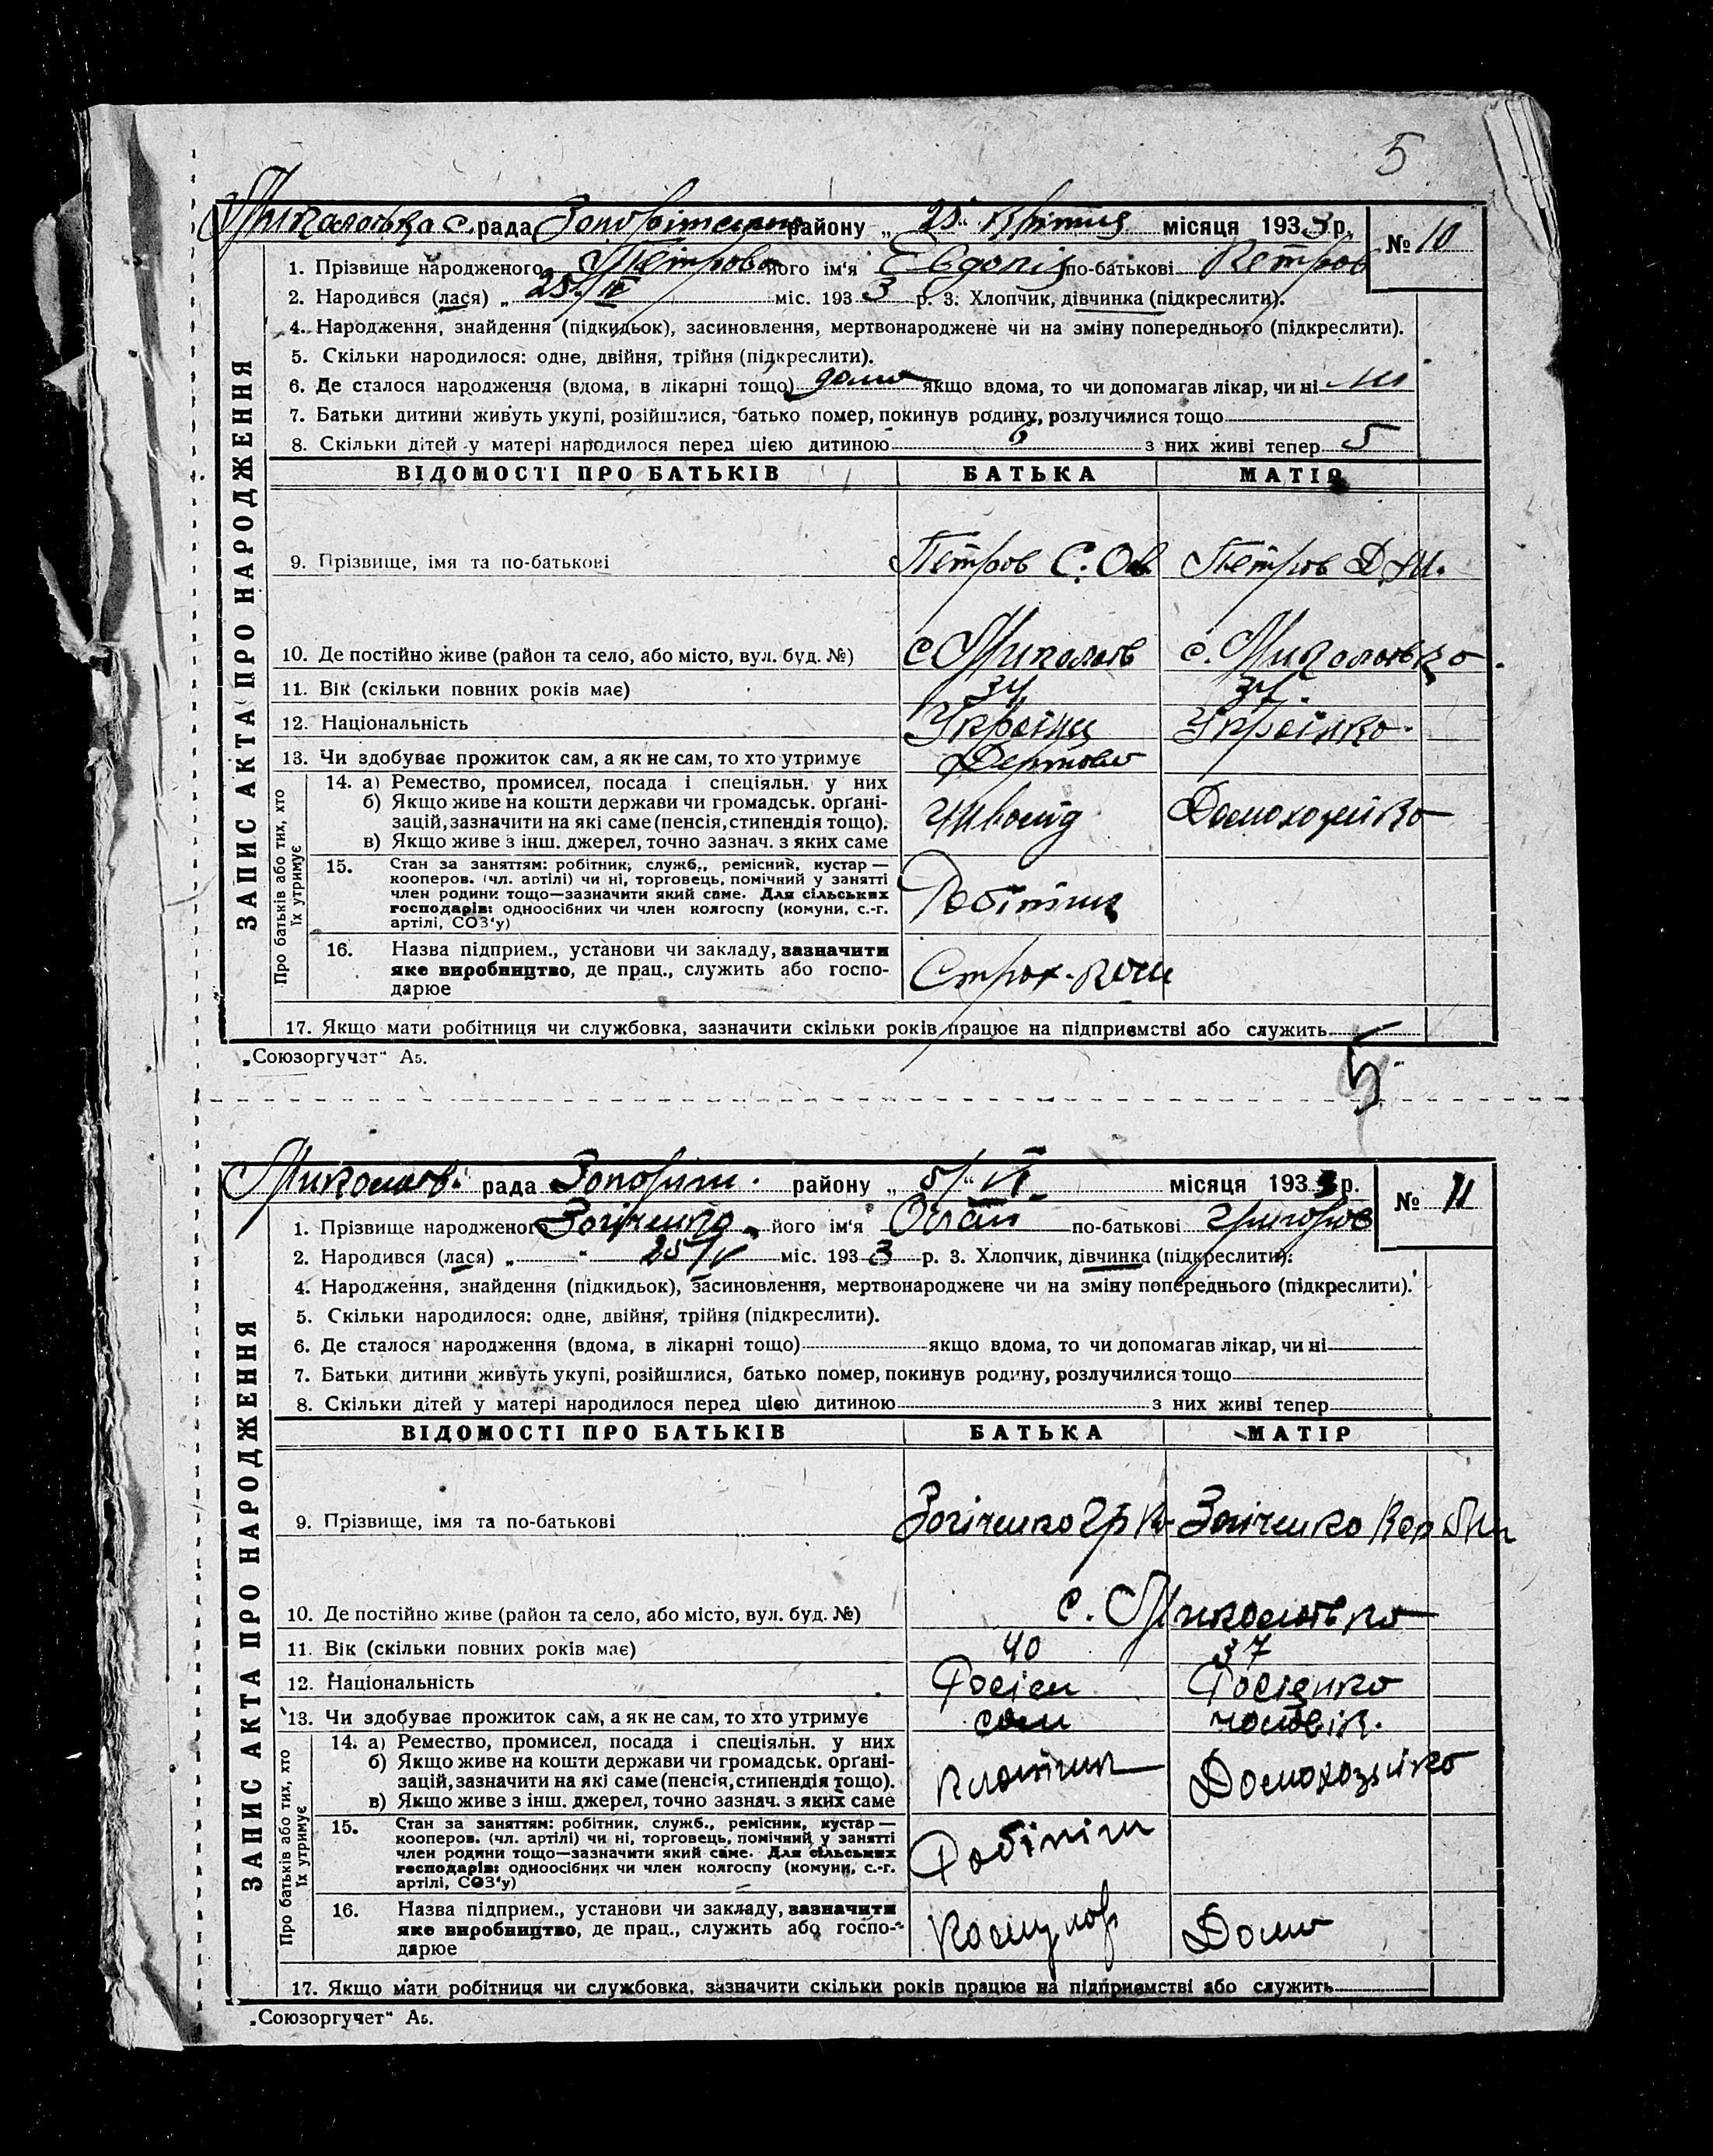 5
рада района „ 25 " квітня місяця 1933 р. № 10
1. Прізвище народженого Петрова його ім'я по-батькові Петров
2. Народився (лася) „ 25/IV міс. 1933 р. 3. Хлопчик, дівчинка (підкреслити).
4. Народження, знайдення (підкидьок), засиновлення, мертвонароджене чи на зміну попереднього (підкреслити).
5. Скільки народилося: одне, двійня, трійня (підкреслити).
6. Де сталося народження (вдома, в лікарні тощо) дома якщо вдома, то чи допомагав лікар, чи ні ні
7. Батьки дитини живуть укупі, розійшлися, батько помер, покинув родину, розлучилися тощо
8. Скільки дітей у матері народилося перед цією дитиною 6 з них живі тепер 5
ВІДОМОСТІ ПРО БАТЬКІВ БАТЬКА МАТІР
9. Прізвище, імя та по-батькові Петров С. Петров Д.
10. Де постійно живе (район та село, або місто, вул. буд. №) с. Миколаїв с. Миколаївка
11. Вік (скільки повних років має) 34 34
12. Національність Українц Українка
13. Чи здобуває прожиток сам, а як не сам, то хто утримує
14. а) Ремество, промисел, посада і спеціяльн. у них
б) Якщо живе на кошти держави чи громадськ. органі-
зацій, зазначити на які саме (пенсія, стипендія тощо). Домохозяйка
в) Якщо живе з інш. джерел, точно зазнач. з яких саме
15. Стан за заняттям: робітник, служб., ремісник, кустар —
кооперов. (чл. артілі) чи ні, торговець, помічний у занятті
член родини тощо—зазначити який саме. Для сільських
господарів: одноосібних чи член колгоспу (комуни, с.-г.
артілі, СОЗ'у) Робітник
16. Назва підприєм., установи чи закладу, зазначити
яке виробництво, де прац., служить або госпо-
дарює
17. Якщо мати робітниця чи службовка, зазначити скільки років працює на підприємстві або служить
Про батьків або тих, хто
їх утримує
ЗАПИС АКТА ПРО НАРОДЖЕННЯ
„Союзоргучэт" А5.
5
Миколаїв. рада району „ 5/ " VI місяця 1933 р. № 11
1. Прізвище народженого його ім'я по-батькові Григоров
2. Народився (лася) „ " 25/IV міс. 1933 р. 3. Хлопчик, дівчинка (підкреслити).
4. Народження, знайдення (підкидьок), засиновлення, мертвонароджене чи на зміну попереднього (підкреслити).
5. Скільки народилося: одне, двійня, трійня (підкреслити).
6. Де сталося народження (вдома, в лікарні тощо) якщо вдома, то чи допомагав лікар, чи ні
7. Батьки дитини живуть укупі, розійшлися, батько помер, покинув родину, розлучилися тощо
8. Скільки дітей у матері народилося перед цією дитиною з них живі тепер
ВІДОМОСТІ ПРО БАТЬКІВ БАТЬКА МАТІР
9. Прізвище, імя та по-батькові
10. Де постійно живе (район та село, або місто, вул. буд. №) с. Миколаївка
11. Вік (скільки повних років має) 40 37
12. Національність Росіян Росіянка
13. Чи здобуває прожиток сам, а як не сам, то хто утримує сам чоловік.
14. а) Ремество, промисел, посада і спеціяльн. у них
б) Якщо живе на кошти держави чи громадськ. органі-
зацій, зазначити на які саме (пенсія, стипендія тощо). плотник Домохозяйка
в) Якщо живе з інш. джерел, точно зазнач. з яких саме
15. Стан за заняттям: робітник, служб., ремісник, кустар —
кооперов. (чл. артілі) чи ні, торговець, помічний у занятті
член родини тощо—зазначити який саме. Для сільських
господарів: одноосібних чи член колгоспу (комуни, с.-г.
артілі, СОЗ'у) Робітник
16. Назва підприєм., установи чи закладу, зазначити
яке виробництво, де прац., служить або госпо-
дарює Дома
17. Якщо мати робітниця чи службовка, зазначити скільки років працює на підприємстві або служить
Про батьків або тих, хто
їх утримує
ЗАПИС АКТА ПРО НАРОДЖЕННЯ
„Союзоргучет" А5.